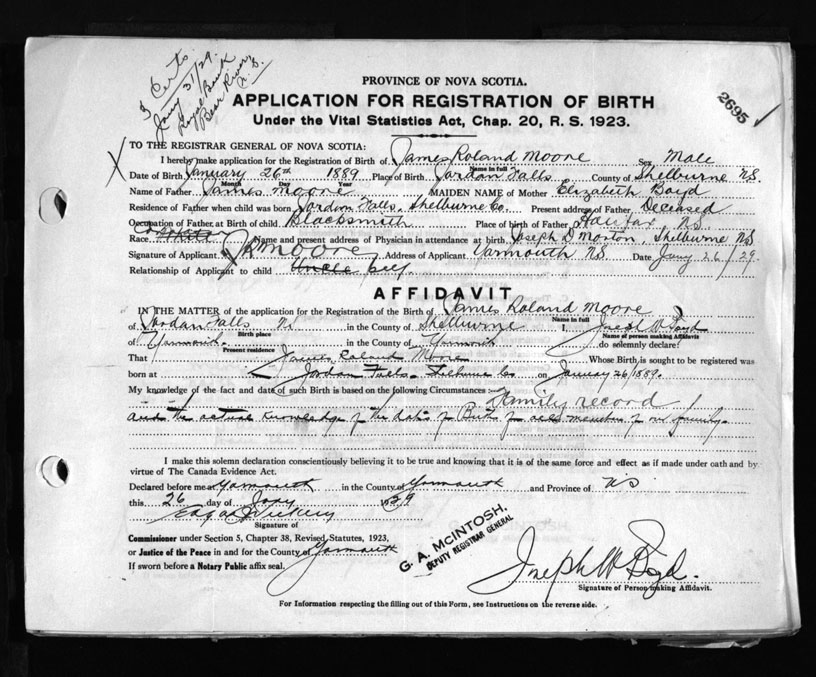 3 Certs.
Jany 31/29.
Royal Bank
Bear River
N.S.
PROVINCE OF NOVA SCOTIA.
APPLICATION FOR REGISTRATION OF BIRTH
Under the Vital Statistics Act, Chap. 20, R. S. 1923.
2695
TO THE REGISTRAR GENERAL OF NOVA SCOTIA:
I hereby make application for the Registration of Birth of James Roland Moore Sex Male
Name in full
Date of Birth January 26th 1889 Place of Birth Jordan Falls County of Shelburne N.S.
Month Day Year
Name of Father James Moore MAIDEN NAME of Mother Elizabeth Boyd
Residence of Father when child was born Jordan Falls, Shelburne Co. Present address of Father Deceased
Occupation of Father at Birth of child Blacksmith Place of birth of Father Halifax NS
Race Name and present address of Physician in attendance at birth Joseph D Morton, Shelburne NS
Signature of Applicant Moore Address of Applicant Yarmouth N.S. Date Jany 26/29.
Relationship of Applicant to child Uncle self
AFFIDAVIT
IN THE MATTER of the application for the Registration of the Birth of James Roland Moore
Name in full
of Jordan Falls NS in the County of Shelburne I, Joseph W Boyd
Birth place Name of person making Affidavit
of Yarmouth in the County of Yarmouth do solemnly declare:
Present residence
That James Roland Moore Whose Birth is sought to be registered was
born at Jordan Falls Shelburne Co. on January 26/1889.
My knowledge of the fact and date of such Birth is based on the following Circumstances:- Family record
and the actual knowledge of the date of Birth of all members of our family.
I make this solemn declaration conscientiously believing it to be true and knowing that it is of the same force and effect as if made under oath and by
virtue of The Canada Evidence Act.
Declared before me at Yarmouth in the County of Yarmouth and Province of NS
this 26 day of Jany 1929
Signature of
Commissioner under Section 5, Chapter 38, Revised Statutes, 1923,
or Justice of the Peace in and for the County of Yarmouth
If sworn before a Notary Public affix seal.
G. A. McINTOSH,
DEPUTY REGISTRAR GENERAL
Joseph W Boyd.
Signature of Person making Affidavit.
For Information respecting the filling out of this Form, see Instructions on the reverse side.